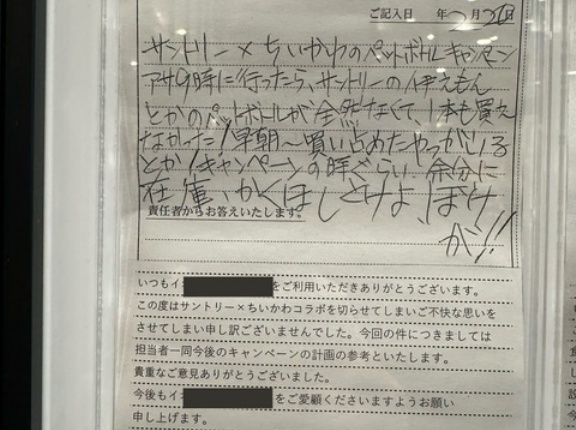 ご記入日 年 2月20日
サントリー×ちいかわのペットボトルキャンペーン
アサ9時に行ったら、サントリーの伊えもん
とかのペットボトルが全然なくて、1本も買え
なかった!早朝〜買い占めたやつがいる
とか!キャンペーンの時ぐらい、余分に
在庫かくほしとけよ、ぼけ
が!!
責任者からお答えいたします。
いつもイ をご利用いただきありがとうございます。
この度はサントリー×ちいかわコラボを切らせてしまいご不快な思いを
させてしまい申し訳ございませんでした。今回の件につきましては
担当者一同今後のキャンペーンの計画の参考といたします。
貴重なご意見ありがとうございました。
今後もイ をご愛顧くださいますようお願い
申し上げます。